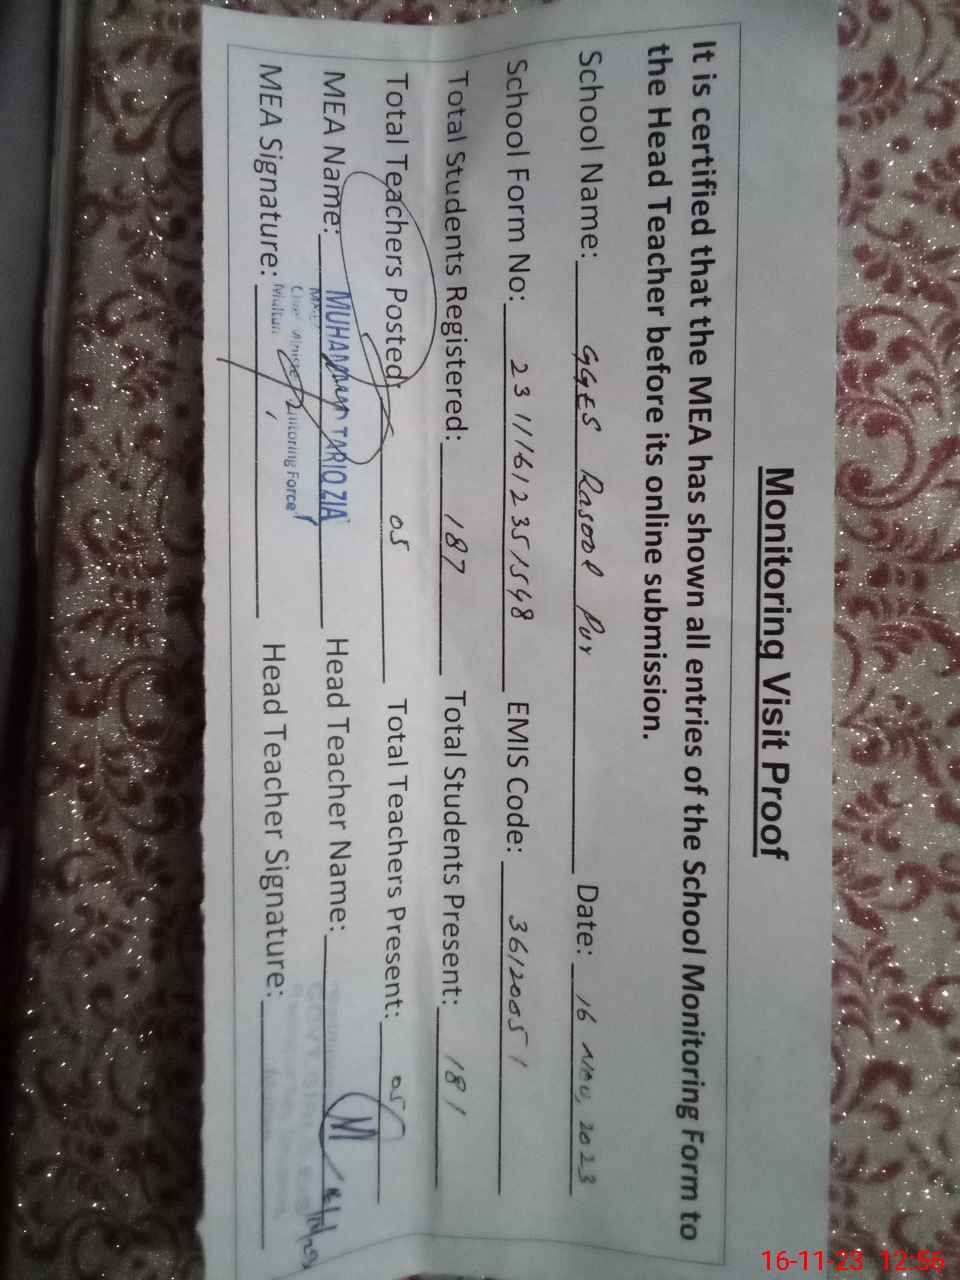 Monitoring Visit Proof
It is certified that the MEA has shown all entries of the School Monitoring Form to
the Head Teacher before its online submission.
School Name: GGES Rasool Pur Date: 16 Nov, 2023
School Form No: 23111612351548 EMIS Code: 36120051
Total Students Registered: 187 Total Students Present: 181
Total Teachers Posted: 05 Total Teachers Present: 05
MEA Name: MUHAMMAD TARIQ ZIA Head Teacher Name:
MEA Signature: Head Teacher Signature:
Monitoring Force
Multan
16-11-23 12:56